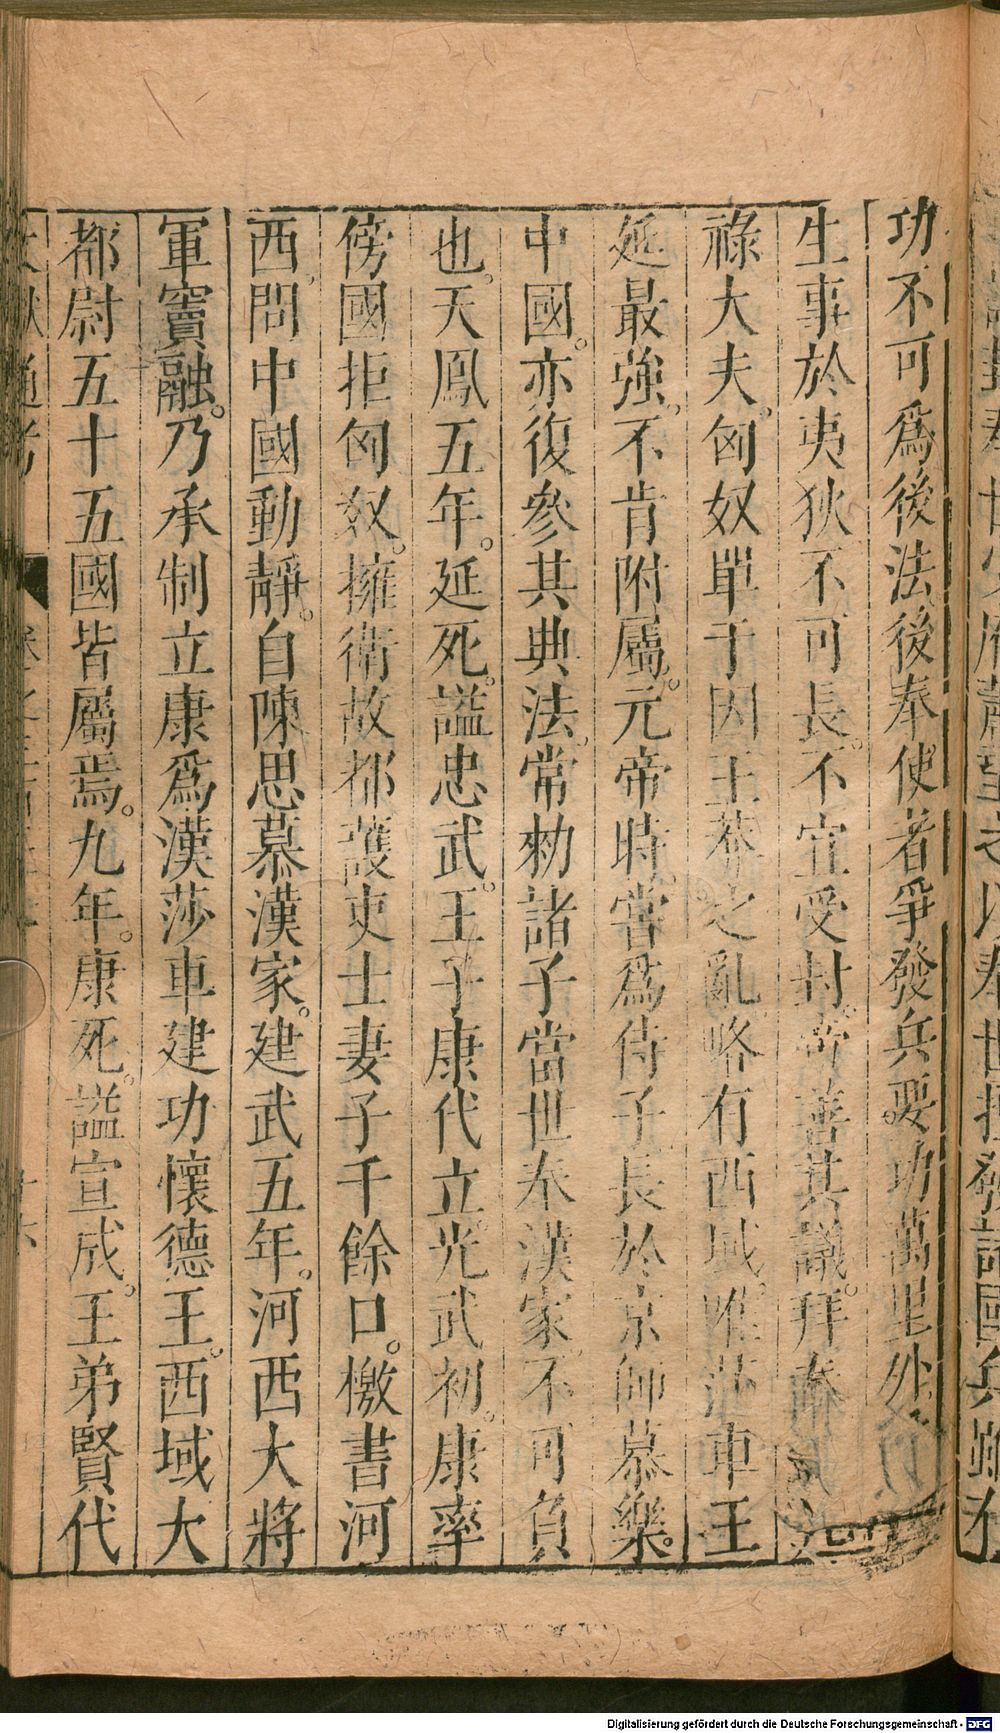 功不可爲後法後奉使者爭發兵要功萬里外
生事於夷狄不可長不宜受封帝善其議拜奉
祿大夫匈奴單于因王莽之亂略有西域唯莎車王
延最強不肯附屬元帝時嘗爲侍子長於京師慕樂
中國亦復參其典法常勑諸子當世奉漢家不可負
也天鳳五年延死諡忠武王子康代立光武初康率
傍國拒匈奴擁衛故都護吏士妻子千餘口檄書河
西問中國動靜自陳思慕漢家建武五年河西大將
軍竇融乃承制立康爲漢莎車建功懷德王西域大
都尉五十五國皆屬焉九年康死諡宣成王弟賢代
Digitalisierung gefördert durch die Deutsche Forschungsgemeinschaft - DFG